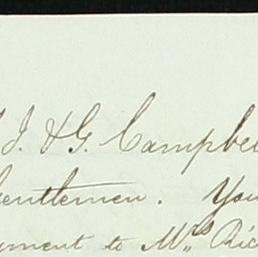 J. & G. Campbe
Gentlemen. You
ment to Mrs Ric